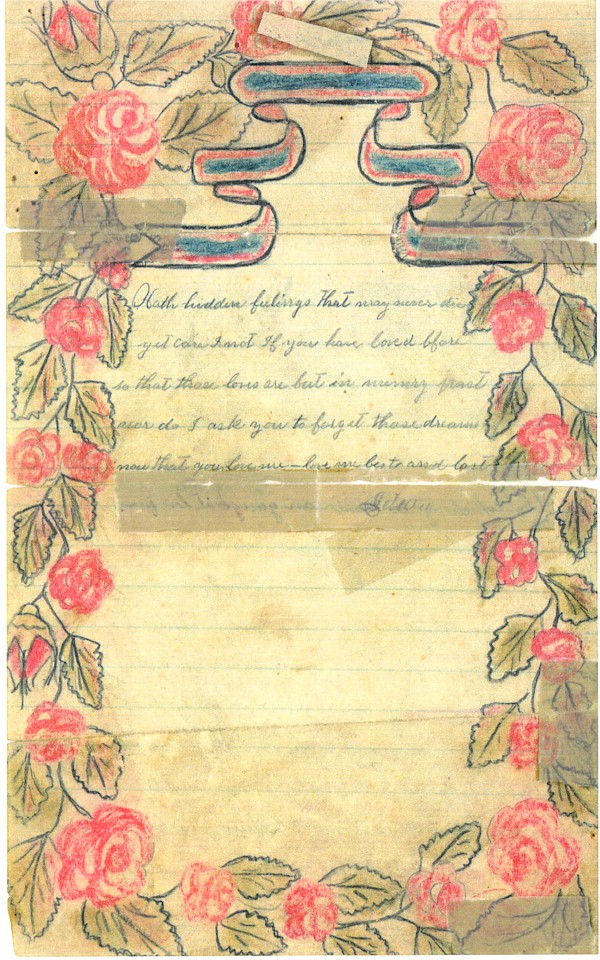 Hath hidden feelings that may never die
yet care I not If you have loved bfore
so that those loves are but in memry past
nor do I ask you to forget those dreams
now that you love me – love me best and last